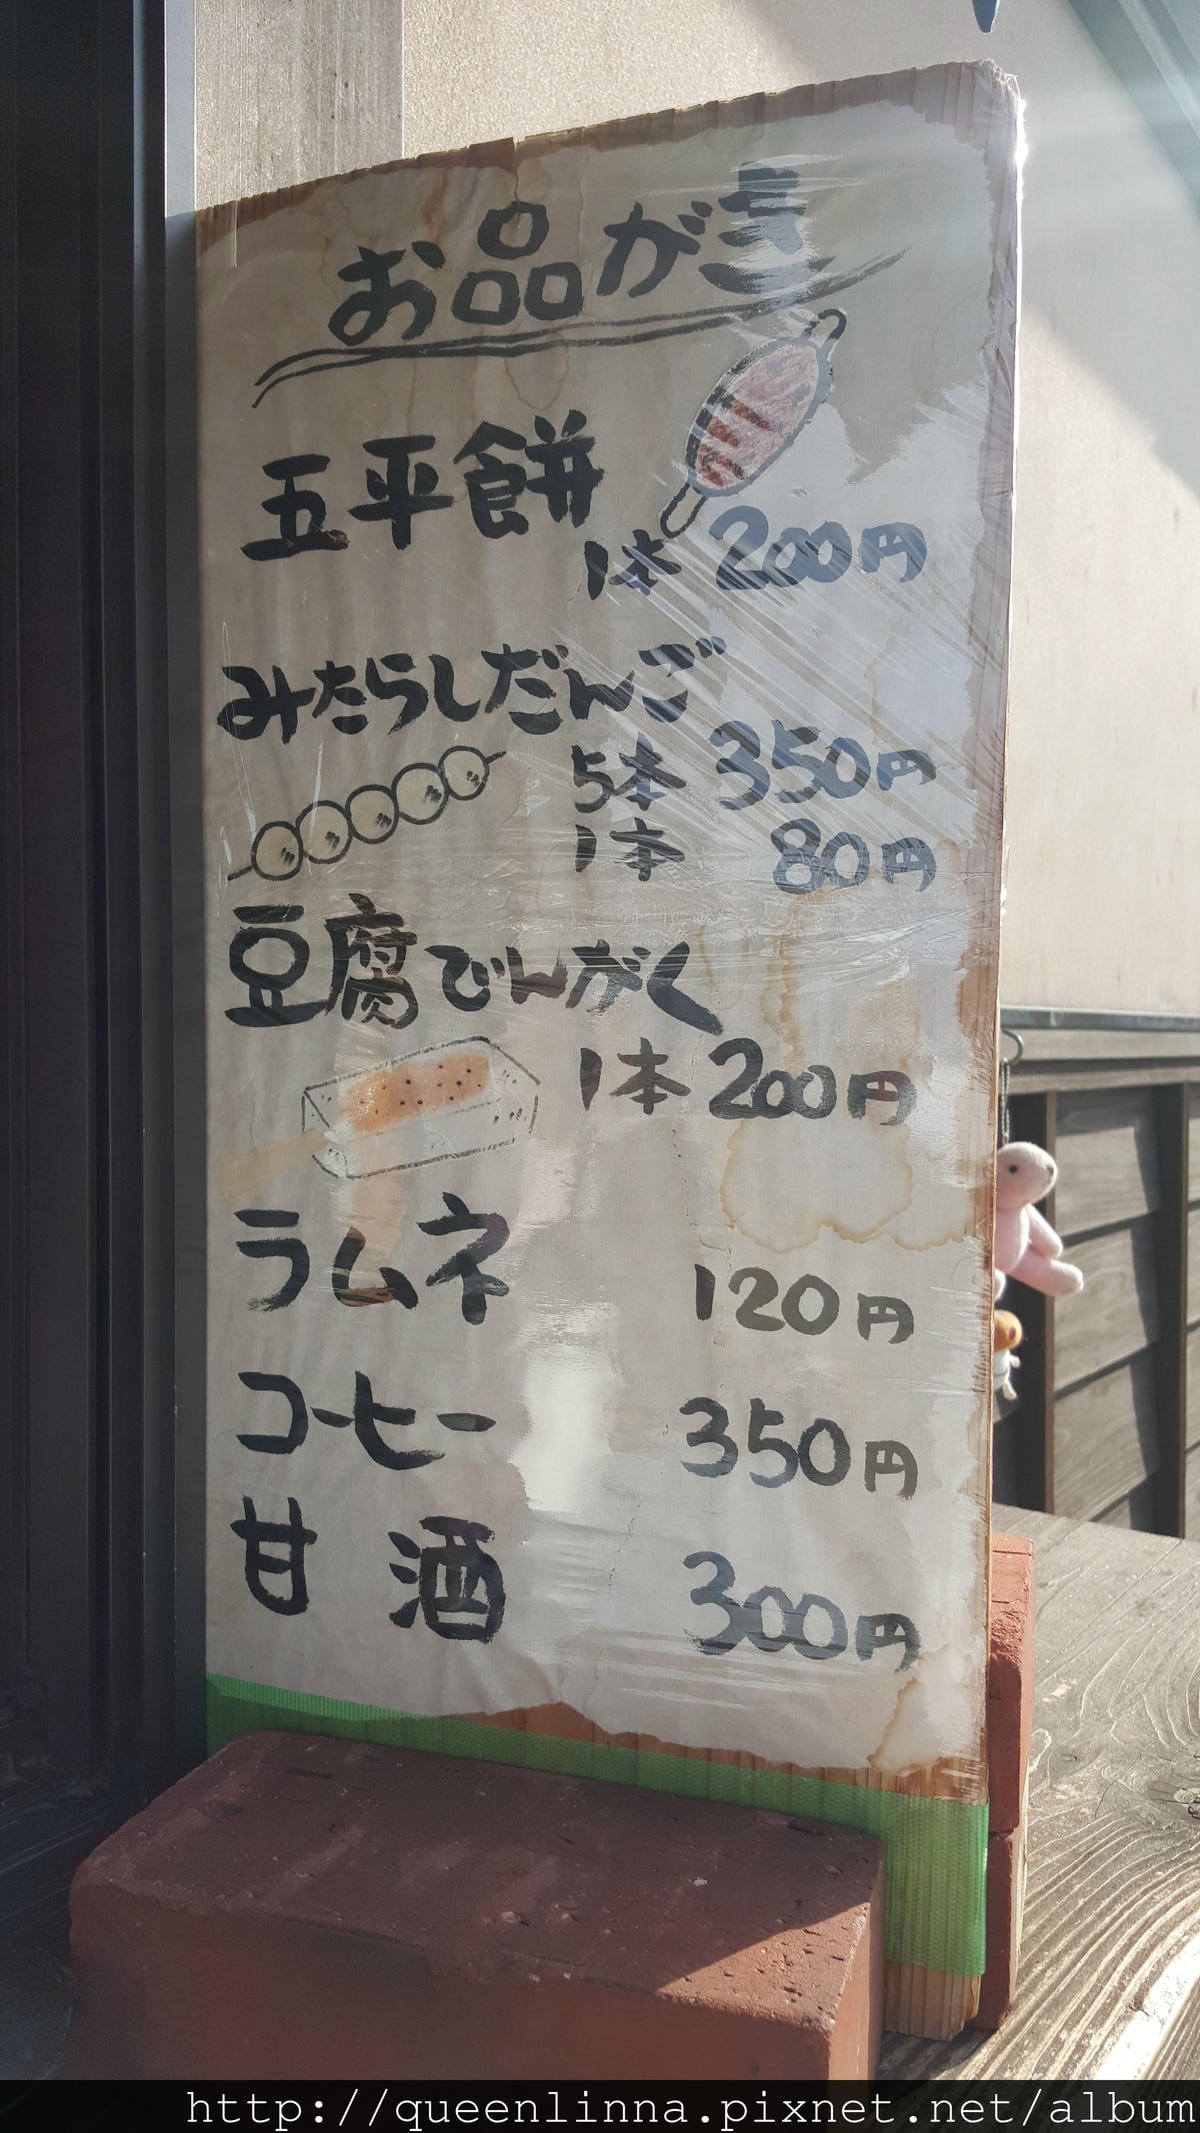 お品がき
五平餅
1本 200円
みたらしだんご
5本 350円
1本 80円
豆腐でんがく
1本 200円
ラムネ 120円
コーヒー 350円
甘酒 300円
http://queenlinna.pixnet.net/album